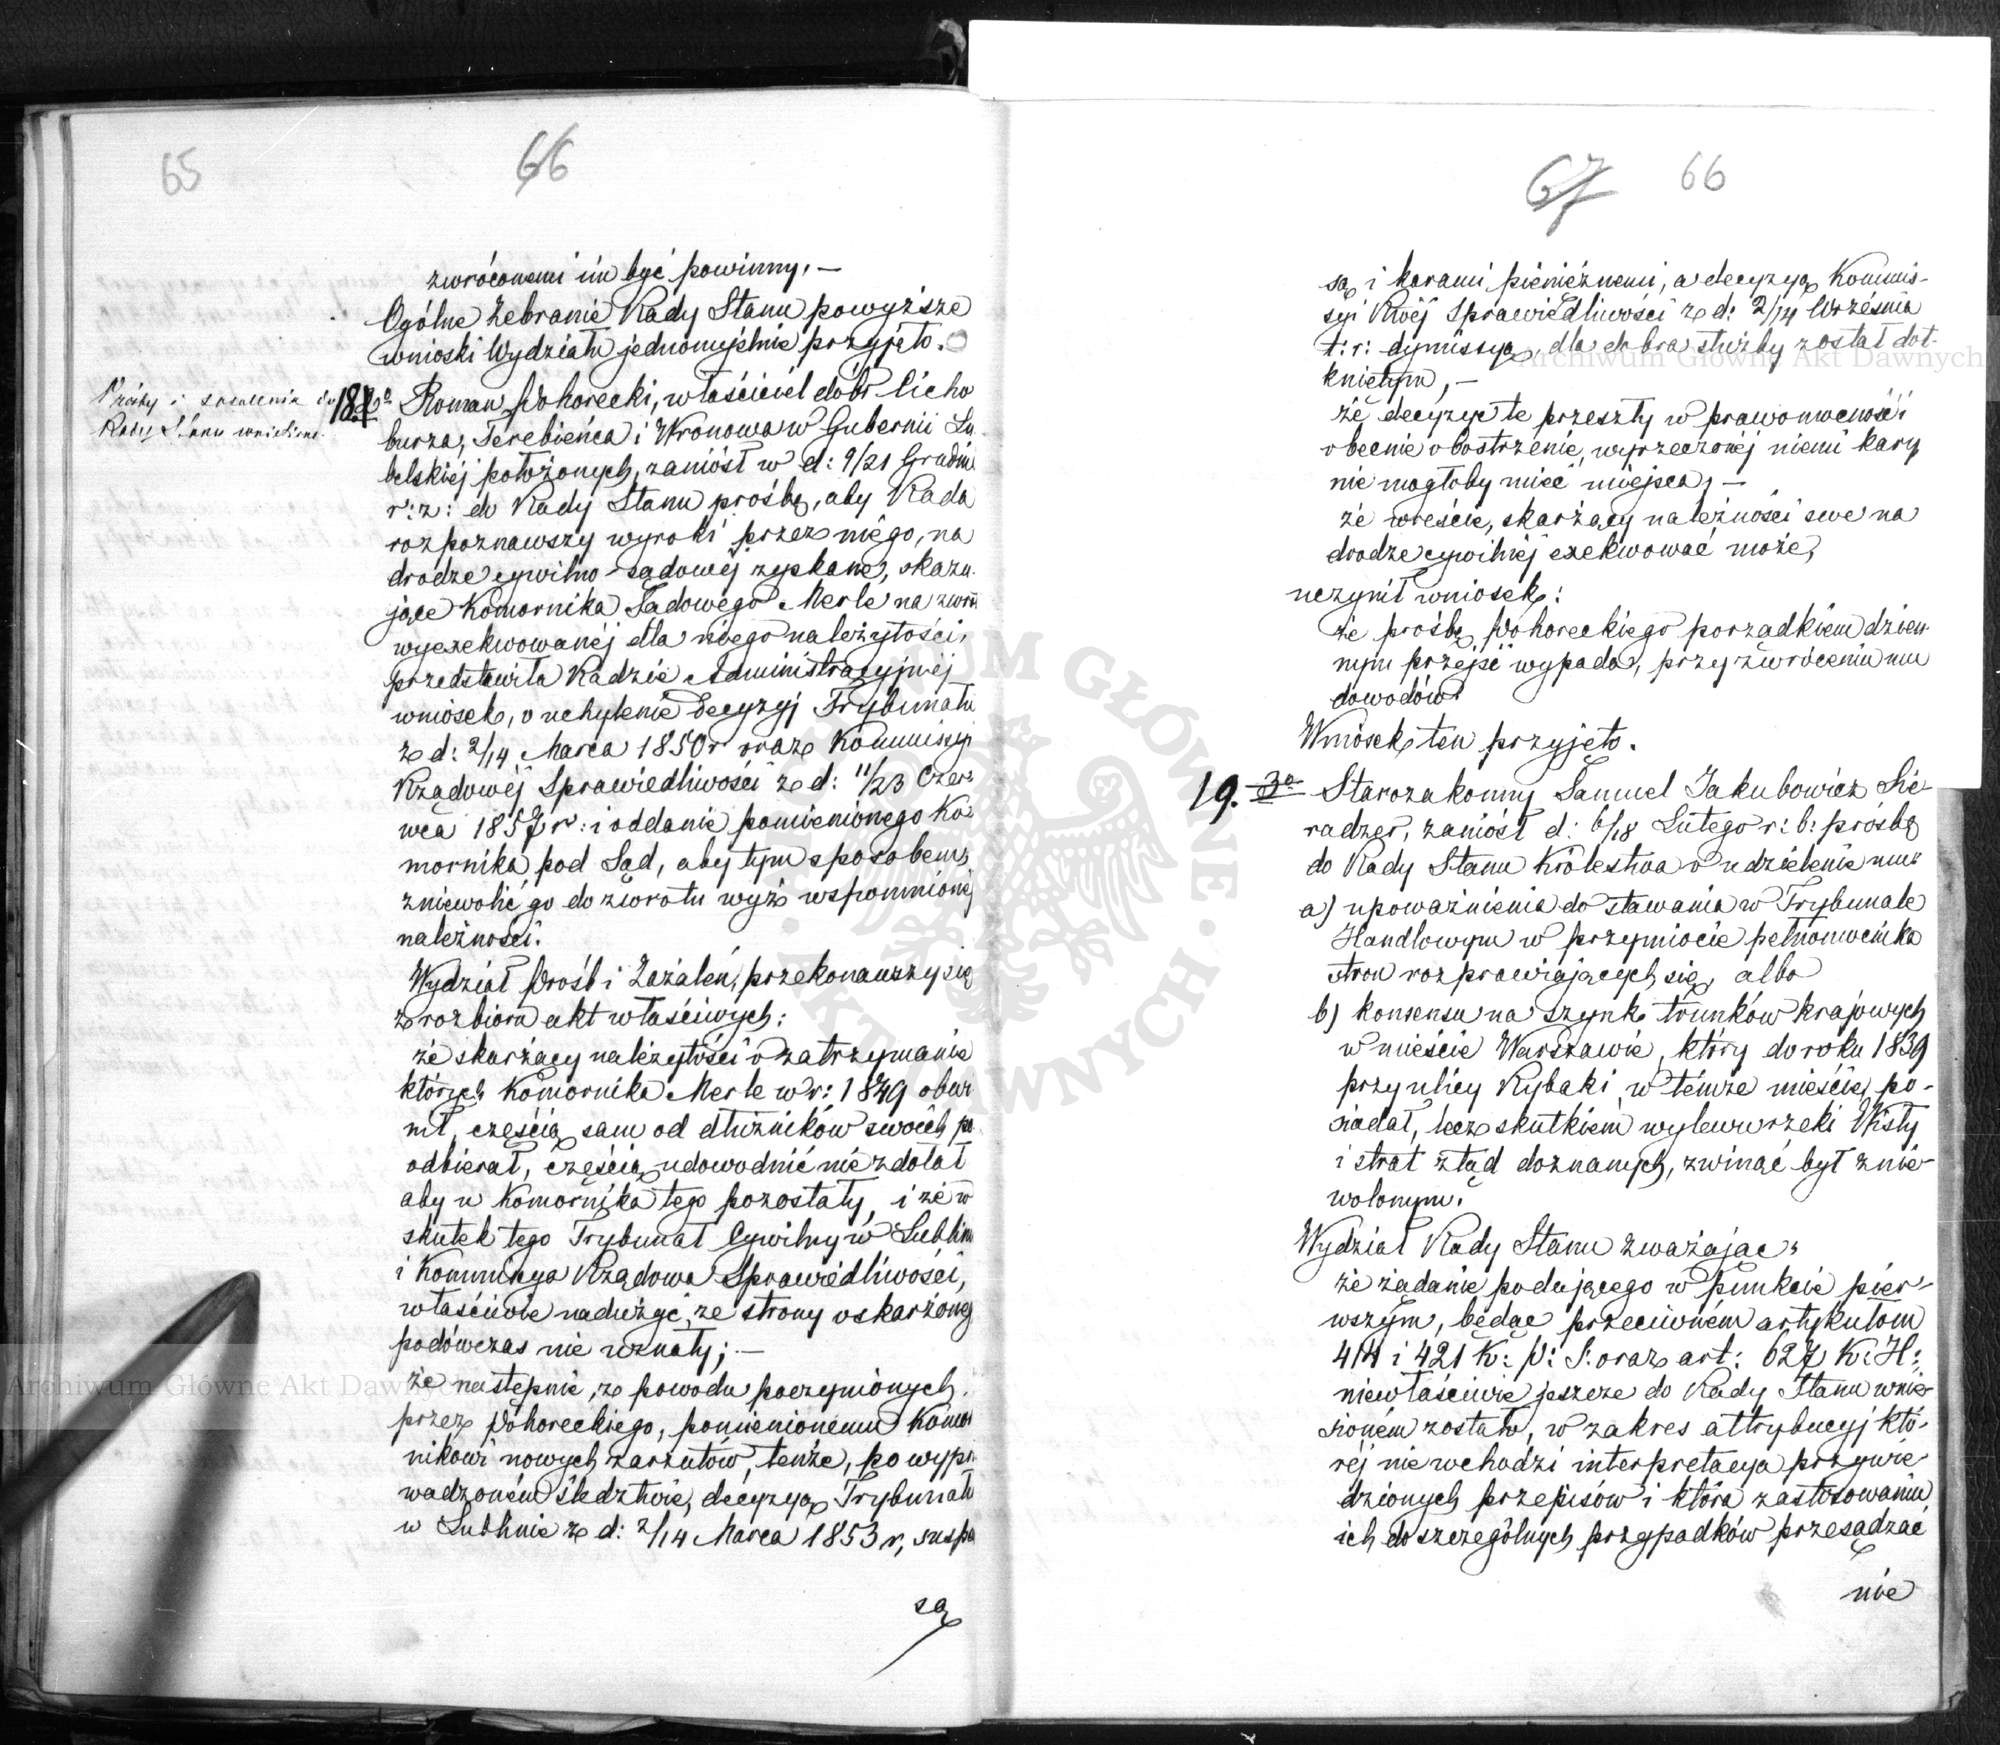 65
66
zwróconemi im być powinny. —
Ogólne Zebranie Rady Stanu powyższe
wnioski Wydziału jednomyślnie przyjęło.
Prośby i zażalenia do
Rady Stanu wniesione.
18. Roman Pohorecki, właściciel dóbr Licho
burza, Terebieńca i Wronowa w Gubernii Lu
belskiéj położonych, zaniósł w d: 9/21 Grudnia
r: z: do Rady Stanu prośbę, aby Rada
rozpoznawszy wyroki przez niego, na
drodze cywilno-sądowéj zyskane, skazu
jące Komornika Sądowego Merle na zwrot
wyexekwowanéj dla niego należytości,
przedstawiła Radzie Administracyjnéj
wniosek, o uchylenie decyzyj Trybunału
z d: 2/14 Marca 1850 r oraz Kommissyi
Rządowéj Sprawiedliwości z d: 11/23 Czer
wca 1857 r: i oddanie pomienionego Ko
mornika pod Sąd, aby tym sposobem
zniewolić go do zwrotu wyż wspomnionéj
należności.
Wydział Próśb i Zażaleń, przekonawszy się
z rozbioru akt właściwych:
że skarżący należytości o zatrzymanie
których Komornika Merle w r: 1849 obwi
nił, częścią sam od dłużników swoich po
odbierał, częścią udowodnić nie zdołał
aby u Komornika tego pozostały, i że w
skutek tego Trybunał Cywilny w Lublinie
i Kommissya Rządowa Sprawiedliwości,
właściwie nadużyć, ze strony oskarżonego
podówczas nie uznały; —
że następnie, z powodu poczynionych
przez Pohoreckiego, pomienionemu Komor
nikowi nowych zarzutów, tenże, po wypro
wadzoném śledztwie, decyzyą Trybunału
w Lublinie z d: 2/14 Marca 1853 r, suspen
są
67 66
są i karami pieniężnemi, a decyzyą Kommis-
syi Rwéj Sprawiedliwości z d: 2/14 Września
t: r: dymissyą, dla dobra służby został dot-
kniętym, —
że decyzye te przeszły w prawomocność i
obecnie obostrzenie, wyrzeczonéj niemi kary
nie mogłoby mieć miejsca, —
że wreście, skarżący należności swe na
drodze cywilnéj exekwować może,
uczynił wniosek:
że prośbę Pohoreckiego porządkiem dzien
nym przejść wypada, przy zwróceniu mu
dowodów.
Wniosek ten przyjęto.
19. 3o Starozakonny Samuel Jakubowicz Sie-
radzer, zaniósł d: 6/18 Lutego r: b: prośbę
do Rady Stanu Królestwa o udzielenie mu:
a) upoważnienia do stawania w Trybunale
Handlowym w przymiocie pełnomocnika
stron rozprawiających się, albo
b) konsensu na szynk trunków krajowych
w mieście Warszawie, który do roku 1839
przy ulicy Rybaki, w témże mieście, po-
siadał, lecz skutkiem wylewu rzeki Wisły
i strat ztąd doznanych, zwinąć był znie-
wolonym.
Wydział Rady Stanu zważając:
że żądanie podającego w punkcie pier-
wszym, będąc przeciwném artykułom
414 i 421 K: P: S: oraz art: 627 K: H:
niewłaściwie jeszcze do Rady Stanu wnie-
sioném zostało, w zakres attrybucyj któ-
réj nie wchodzi interpretacya przywie-
dzionych przepisów i która zastosowaniu
ich do szczególnych przypadków przesądzać
nie
ARCHIWUM GŁÓWNE AKT DAWNYCH
Archiwum Główne Akt Dawnych
Archiwum Główne Akt Dawnych